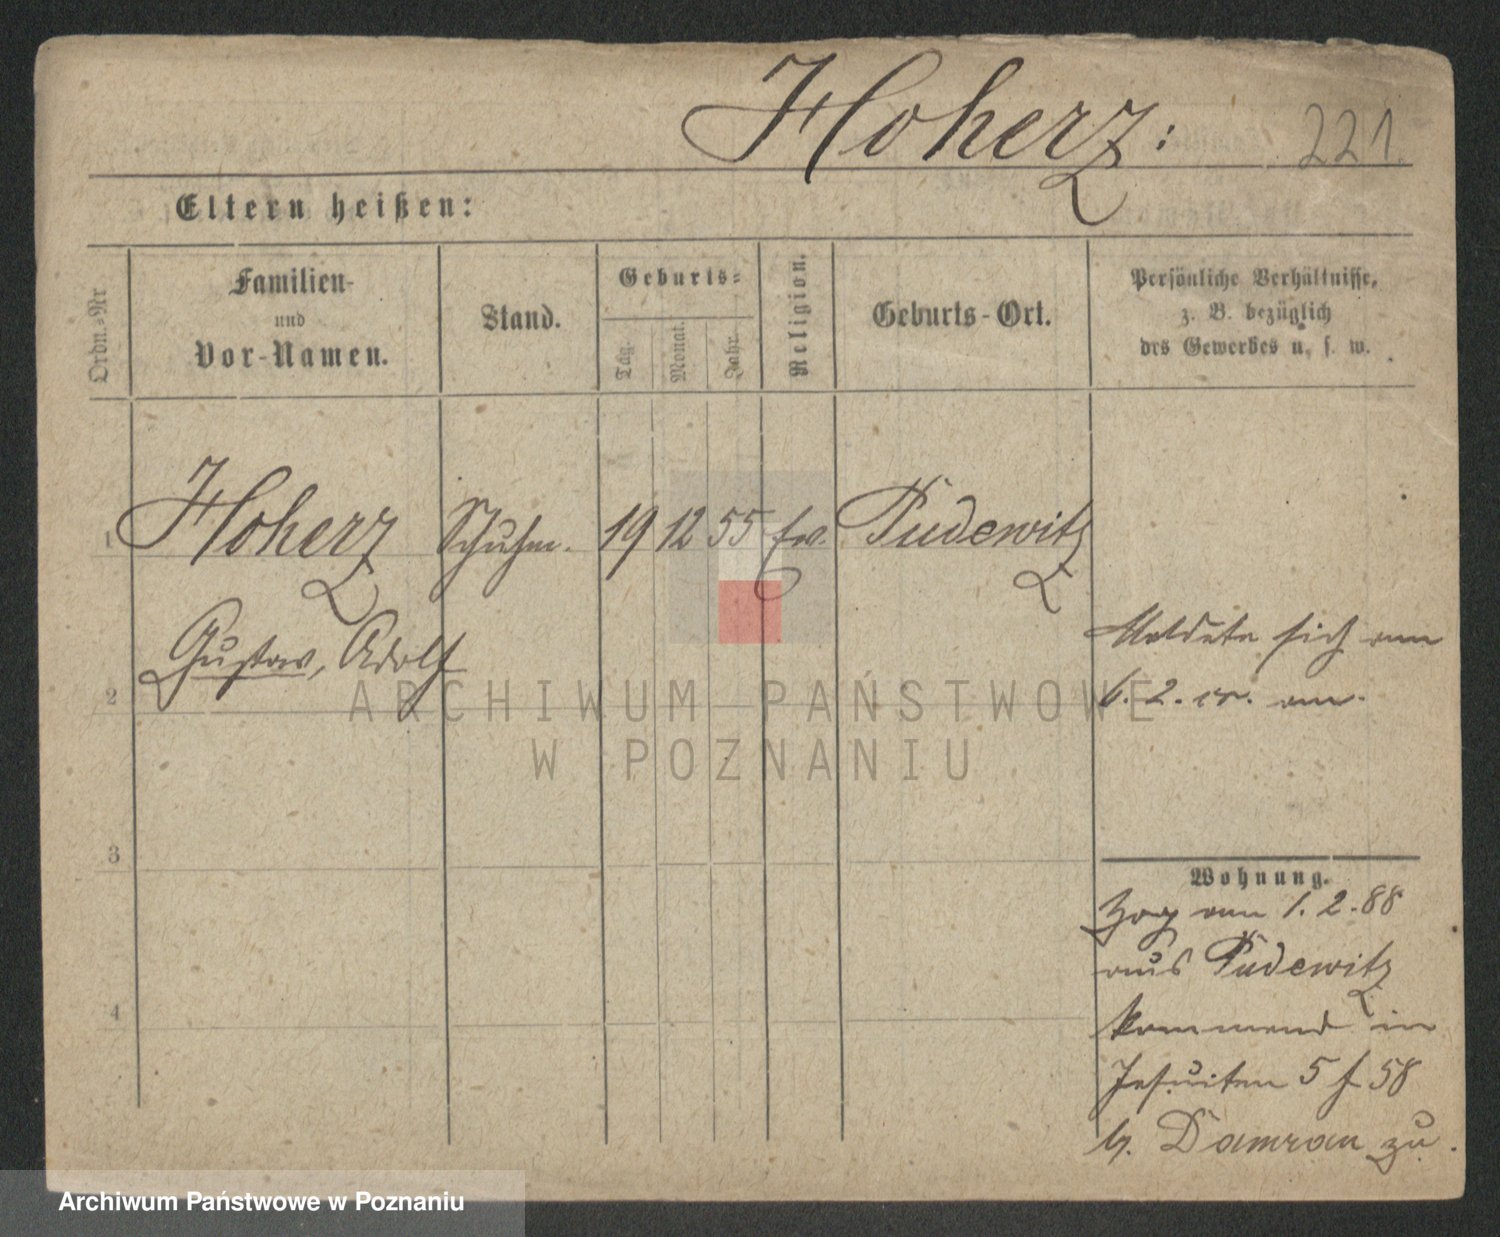 Hoherz: 221.
Eltern heißen:
Ordn.-Nr
Familien-
und
Vor-Namen.
Stand.
Geburts-
Tag.
Monat.
Jahr.
Religion.
Geburts-Ort.
Persönliche Verhältnisse,
z. B. bezüglich
des Gewerbes u. s. w.
1 Hoherz Schuhm. 19 12 55 ev. Pudewitz
Gustav, Adolf
2
3
4
Meldete sich am
6. 2. cr. an.
Wohnung.
Zog am 1. 2. 88
aus Pudewitz
kommend in
Jesuiten 5 f 58
b. Damrau zu.
ARCHIWUM PAŃSTWOWE
W POZNANIU
Archiwum Państwowe w Poznaniu